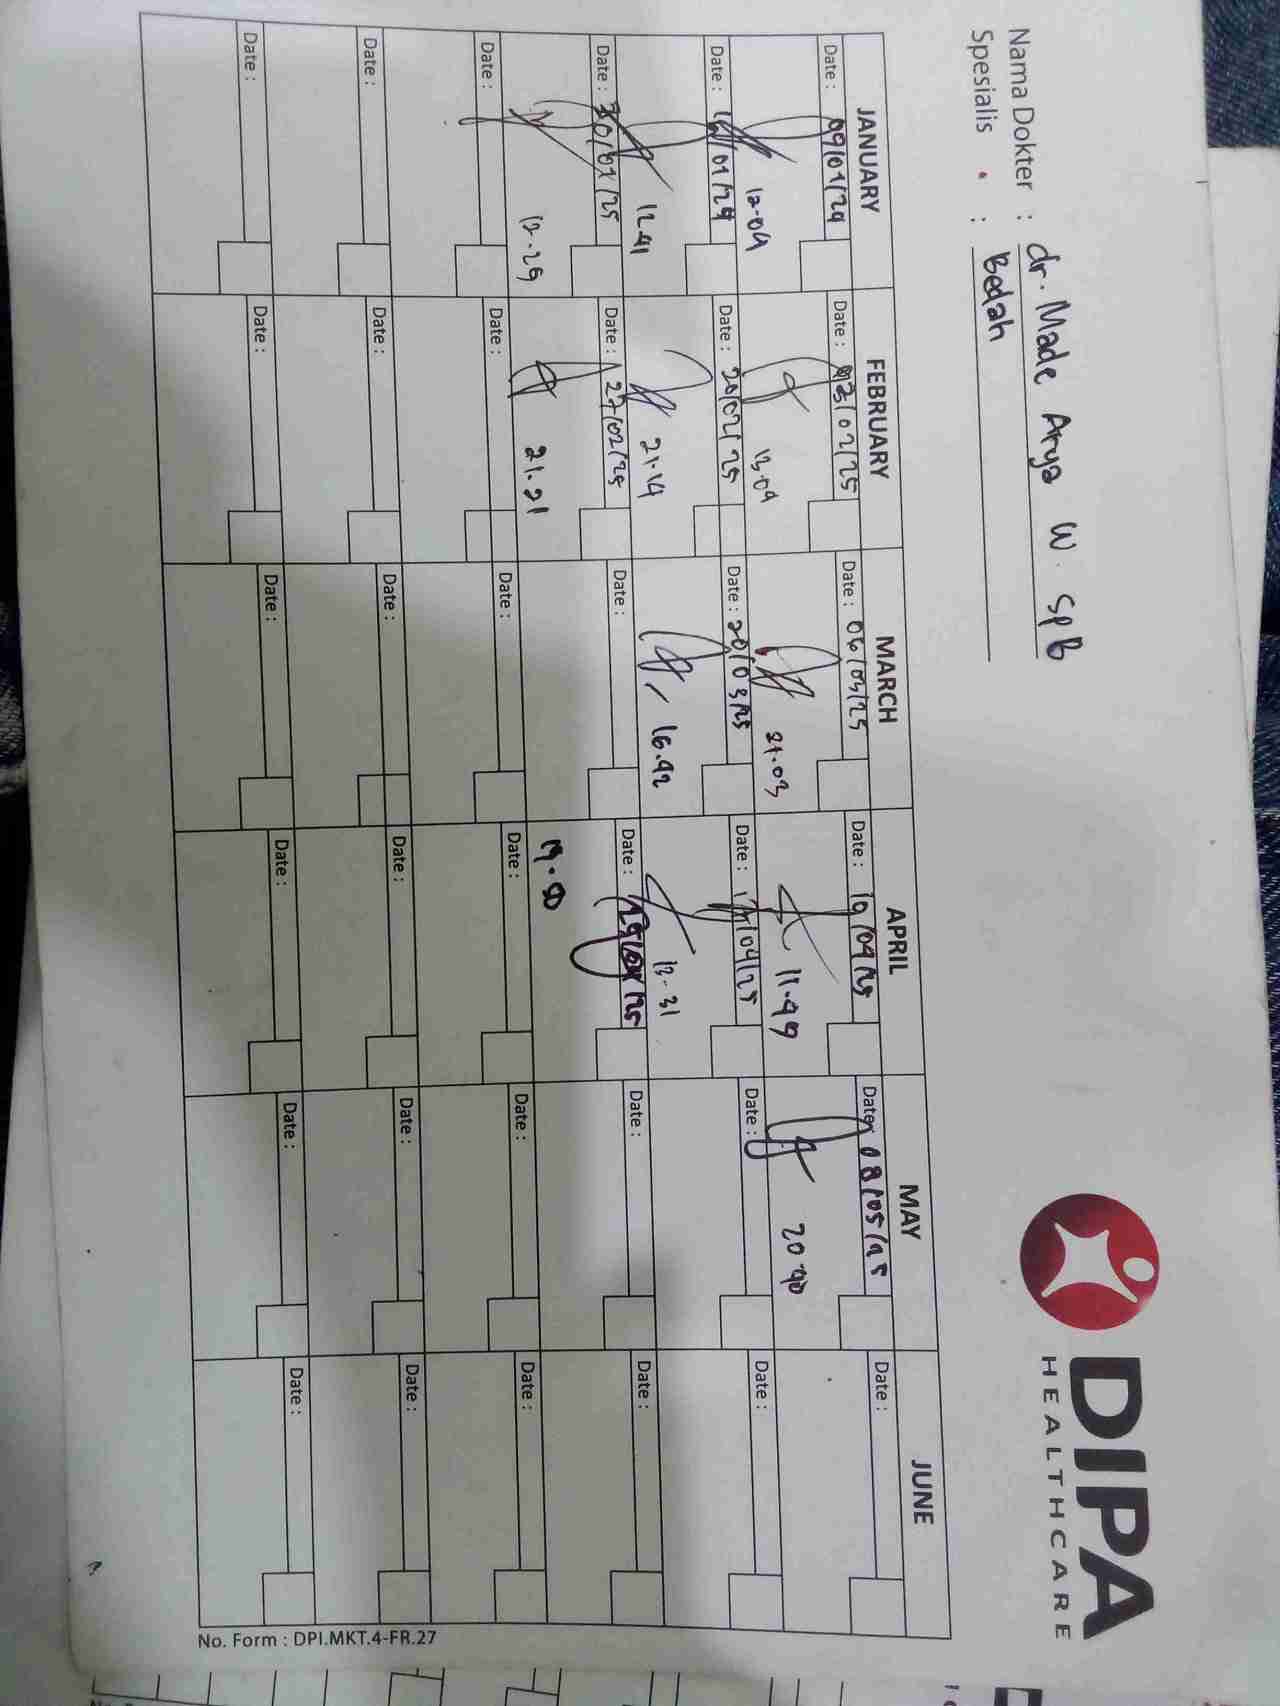 Nama Dokter : dr. Made Arya W. SpB
Spesialis : Bedah
DIPA
HEALTHCARE
JANUARY FEBRUARY MARCH APRIL MAY JUNE
Date : 09/01/24 Date : 03/02/25 Date : 06/03/25 Date : 10/04/25 Date : 08/05/25 Date :
12.04 13.04 21.03 11.49 20 40
Date : 16/01/24 Date : 20/02/25 Date : 20/03/25 Date : 17/04/25 Date : Date :
12.41 21.14 16.42 13.31
Date : 30/01/25 Date : 27/02/25 Date : Date : Date : Date :
12.29 21.21
Date : Date : Date : Date : Date : Date :
Date : Date : Date : Date : Date : Date :
Date : Date : Date : Date : Date : Date :
No. Form : DPI.MKT.4-FR.27